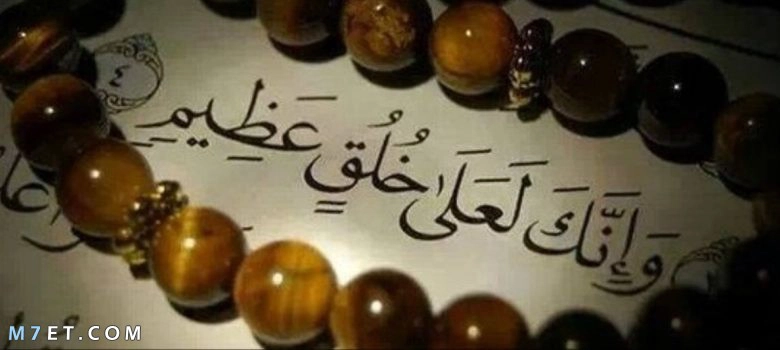 وَإِنَّكَ لَعَلَىٰ خُلُقٍ عَظِيمٍ ٤
M7ET.COM